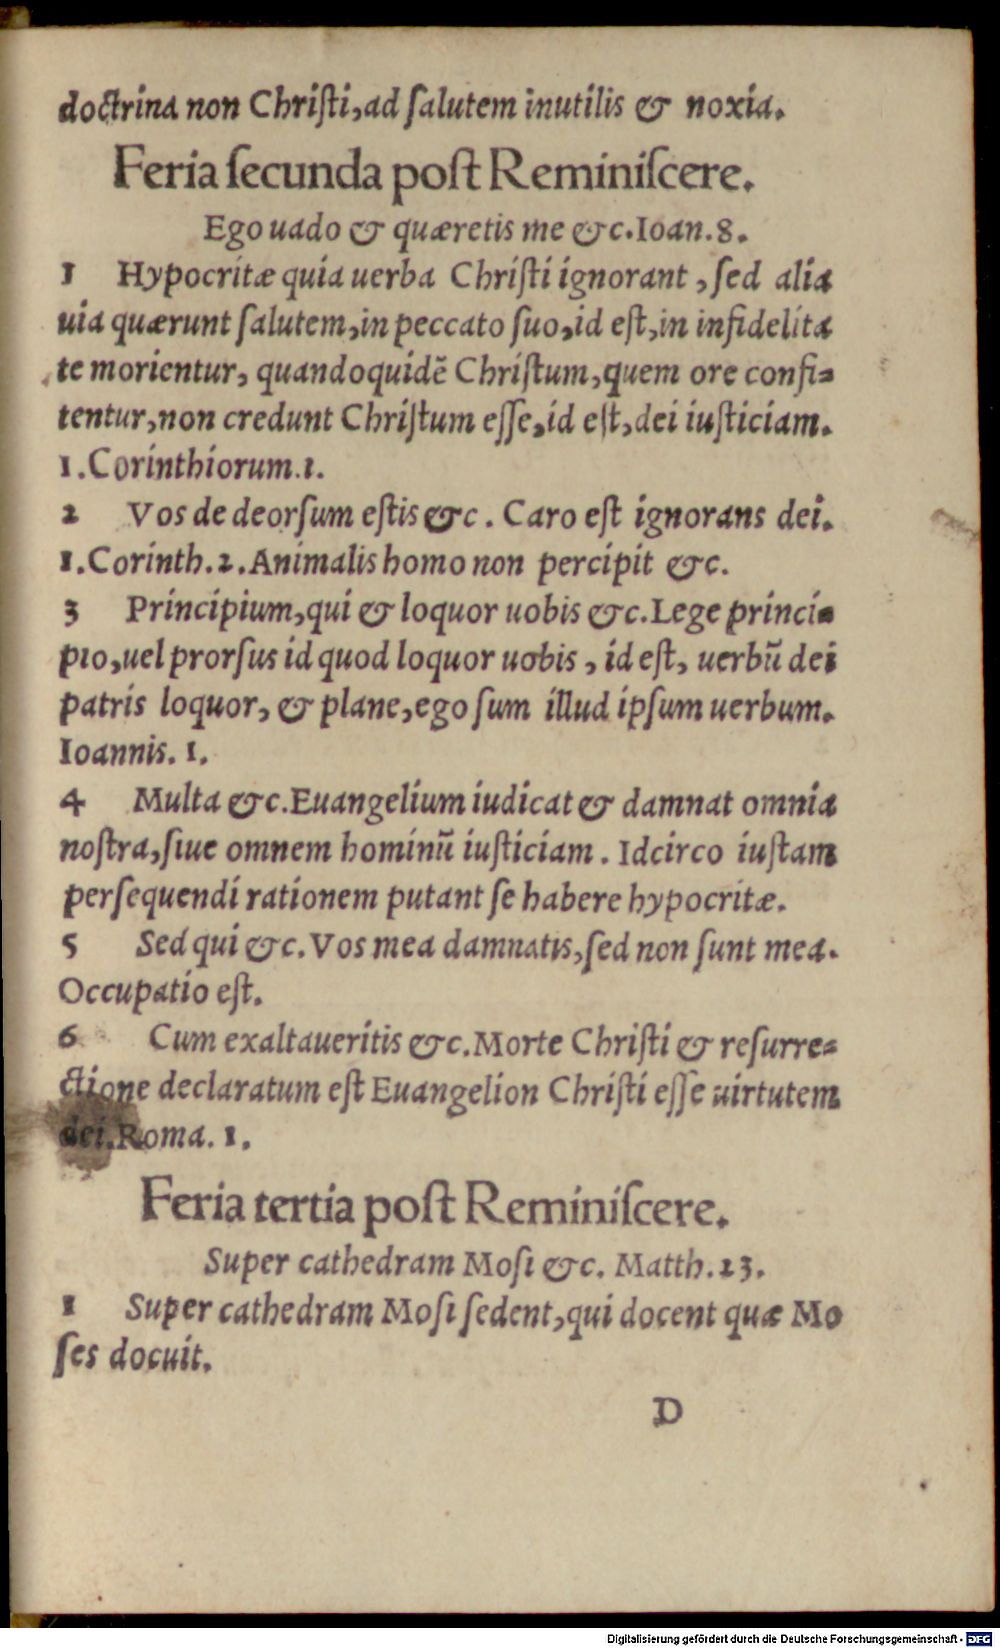 doctrina non Chriſti,ad ſalutem inutilis & noxia.
Feria ſecunda poſt Reminiſcere.
Ego uado & quæretis me &c.Ioan.8.
1 Hypocritæ quia uerba Chriſti ignorant , ſed alia
uia quærunt ſalutem,in peccato ſuo,id eſt,in infidelita
te morientur, quandoquidẽ Chriſtum,quem ore confi-
tentur,non credunt Chriſtum eſſe,id eſt,dei iuſticiam.
1.Corinthiorum.1.
2 Vos de deorſum eſtis &c. Caro eſt ignorans dei.
1.Corinth.2.Animalis homo non percipit &c.
3 Principium,qui & loquor uobis &c.Lege princi-
pio,uel prorſus id quod loquor uobis , id eſt, uerbũ dei
patris loquor, & plane,ego ſum illud ipſum uerbum.
Ioannis. 1.
4 Multa &c.Euangelium iudicat & damnat omnia
noſtra,ſiue omnem hominũ iuſticiam. Idcirco iuſtam
perſequendi rationem putant ſe habere hypocritæ.
5 Sed qui &c.Vos mea damnatis,ſed non ſunt mea.
Occupatio eſt.
6 Cum exaltaueritis &c.Morte Chriſti & reſurre-
ctione declaratum eſt Euangelion Chriſti eſſe uirtutem
dei.Roma. 1.
Feria tertia poſt Reminiſcere.
Super cathedram Moſi &c. Matth.23.
1 Super cathedram Moſi ſedent,qui docent quæ Mo
ſes docuit.
D
Digitalisierung gefördert durch die Deutsche Forschungsgemeinschaft - DFG